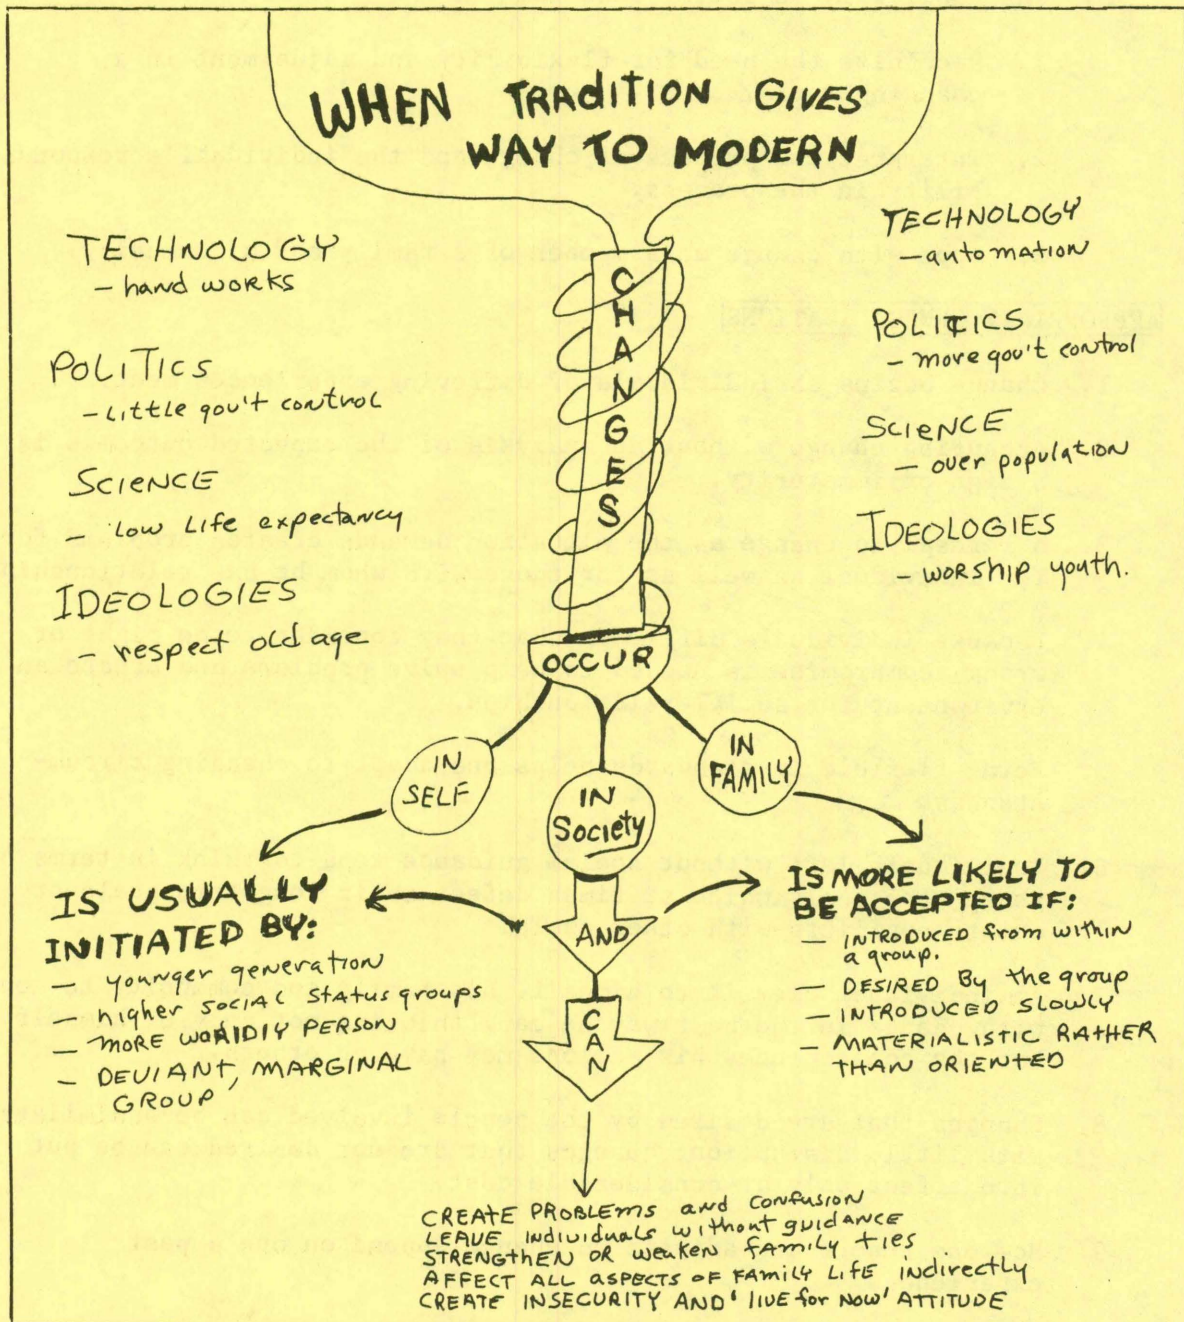 WHEN TRADITION GIVES
WAY TO MODERN
TECHNOLOGY
- hand works
POLITICS
- Little gov't control
SCIENCE
- Low Life expectancy
IDEOLOGIES
- respect old age
CHANGES
OCCUR
TECHNOLOGY
- automation
POLITICS
- more gov't control
SCIENCE
- over population
IDEOLOGIES
- WORSHIP YOUTH.
IN
SELF
IN
Society
IN
FAMILY
IS USUALLY
INITIATED BY:
- younger generation
- higher social status groups
- MORE WORIDIY PERSON
- DEVIANT, MARGINAL
GROUP
AND
IS MORE LIKELY TO
BE ACCEPTED IF:
- INTRODUCED from within
a group.
- DESIRED By the group
- INTRODUCED SLOWLY
- MATERIALISTIC RATHER
THAN ORIENTED
CAN
CREATE PROBLEMS and confusion
LEAVE Individuals without guidance
STRENGTHEN OR weaken family ties
AFFECT ALL ASPECTS OF FAMILY LIFE indirectly
CREATE INSECURITY AND 'LIVE for NOW' ATTITUDE